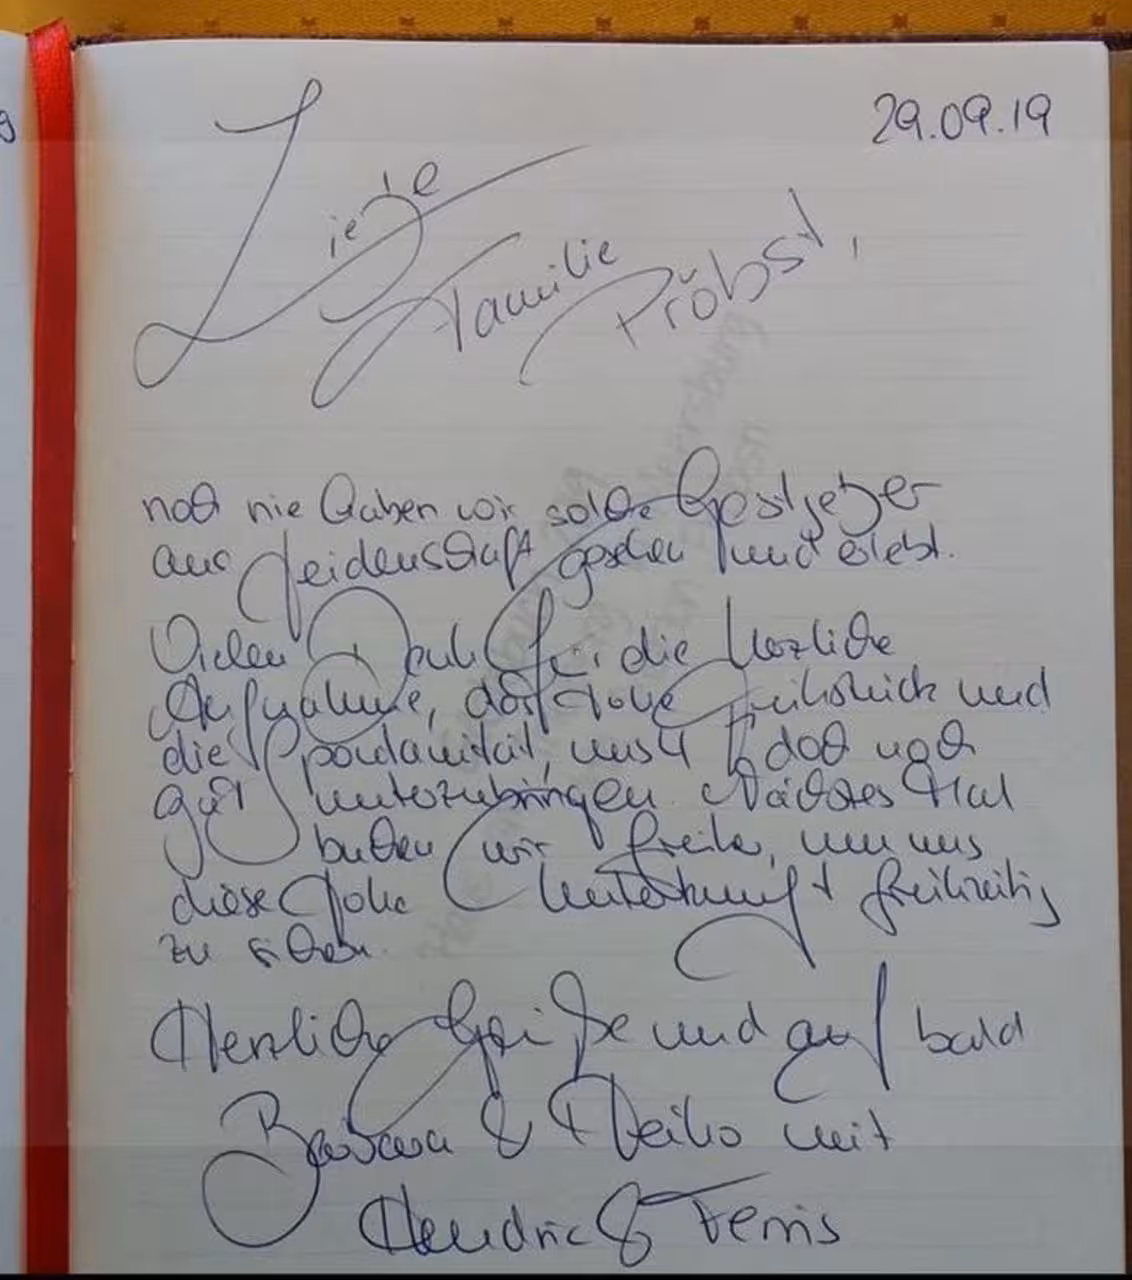 29.09.19
Liebe
Familie
Pröbst,
noch nie haben wir solche Gastgeber
aus Leidenschaft gesehen und erlebt.
Vielen Dank für die herzliche
Aufnahme, das tolle Frühstück und
die Spontanität, uns 4 doch noch
gut unterzubringen. Nächstes Mal
buchen wir früher, um uns
diese tolle Unterkunft frühzeitig
zu sichern.
Herzliche Grüße und auf bald
Barbara & Heiko mit
Hendric & Fenris